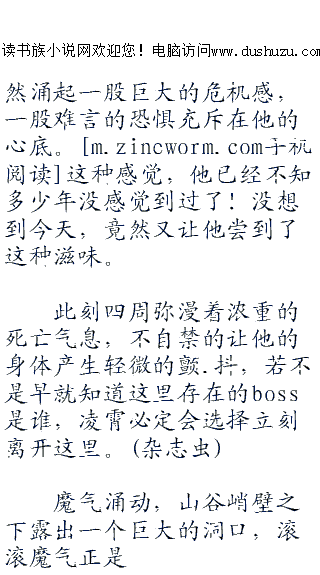 读书族小说网欢迎您！电脑访问www.dushuzu.com
然涌起一股巨大的危机感，
一股难言的恐惧充斥在他的
心底。[m.zincworm.com手机
阅读]这种感觉，他已经不知
多少年没感觉到过了！没想
到今天，竟然又让他尝到了
这种滋味。
此刻四周弥漫着浓重的
死亡气息，不自禁的让他的
身体产生轻微的颤.抖，若不
是早就知道这里存在的boss
是谁，凌霄必定会选择立刻
离开这里。(杂志虫)
魔气涌动，山谷峭壁之
下露出一个巨大的洞口，滚
滚魔气正是